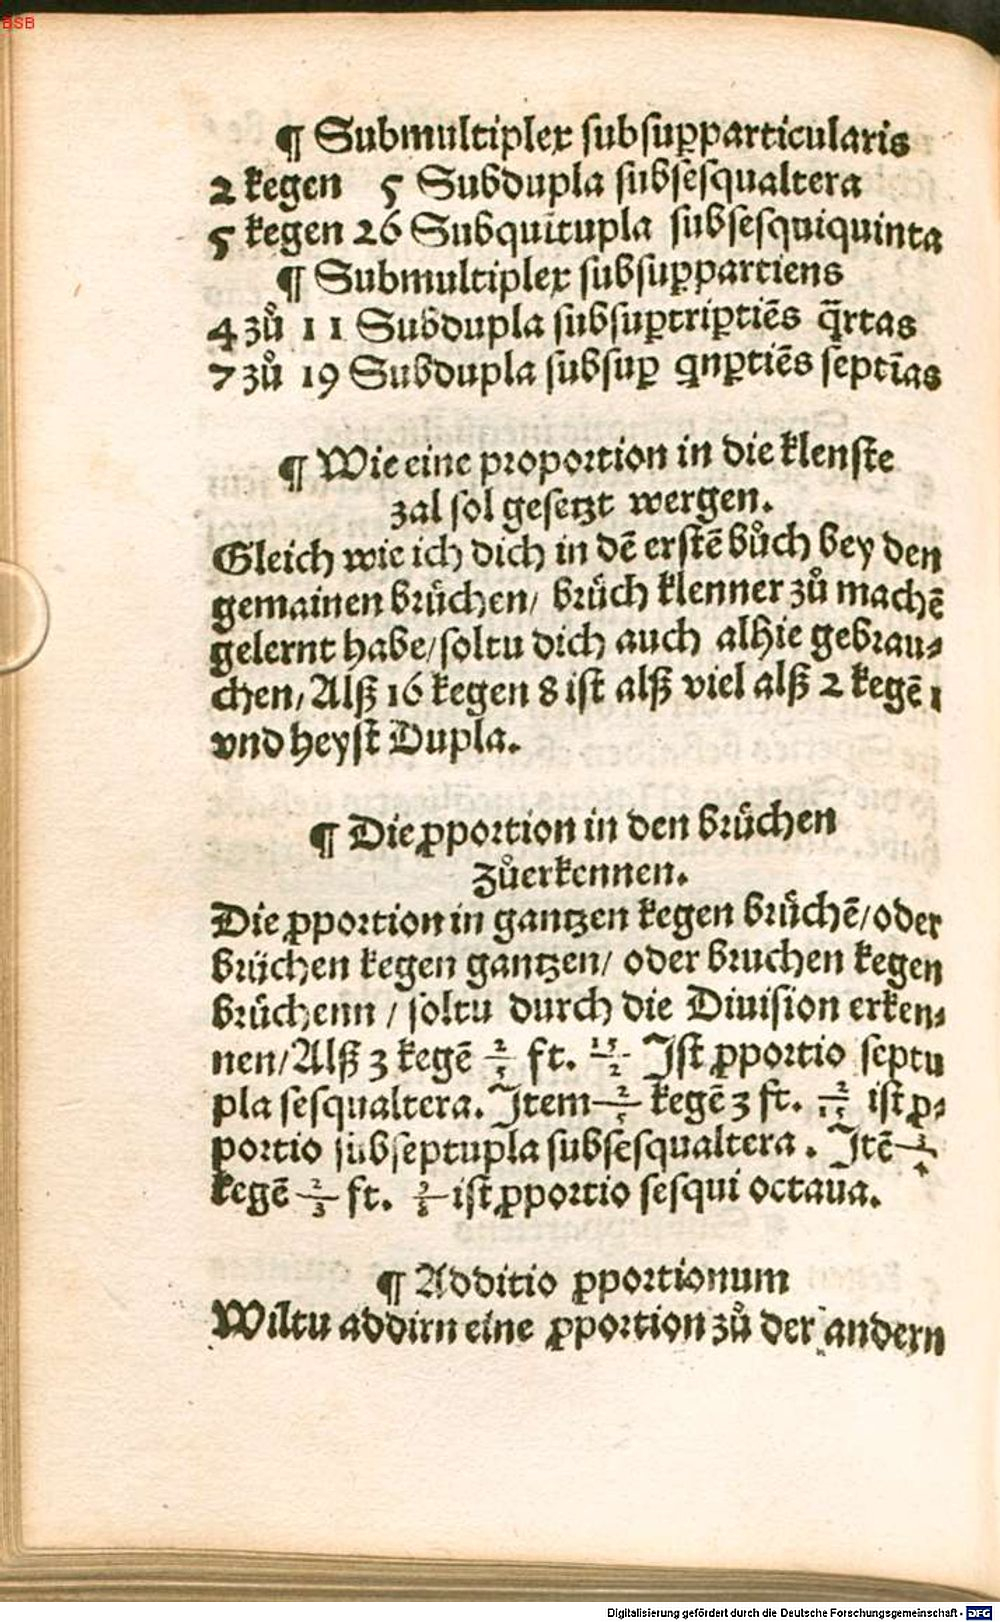 BSB
¶ Submultiplex subsuꝑparticularis
2 kegen 5 Subdupla subsesqualtera
5 kegen 26 Subquītupla subsesquiquinta
¶ Submultiplex subsuꝑpartiens
4 zuͦ 11 Subdupla subsuꝑtriꝑtiēs q̄rtas
7 zuͦ 19 Subdupla subsuꝑ qnꝑtiēs septīas
¶ Wie eine proportion in die klenste
zal sol gesetzt wergen.
Gleich wie ich dich in dē erstē buͦch bey den
gemainen bruͤchen/ bruͤch klenner zuͦ machē
gelernt habe/ soltu dich auch alhie gebrau⸗
chen/ Alß 16 kegen 8 ist alß viel alß 2 kegē 1
vnd heyst Dupla.
¶ Die ꝓportion in den bruͤchen
zuͦerkennen.
Die ꝓportion in gantzen kegen bruͤchē/ oder
bruͤchen kegen gantzen/ oder bruchen kegen
bruͤchenn / soltu durch die Diuision erken⸗
nen/ Alß 3 kegē 2/5 ft. 15/2 Ist ꝓportio septu
pla sesqualtera. Item 2/5 kegē 3 ft. 2/15 ist ꝓ⸗
portio subseptupla subsesqualtera. Itē 3/4
kegē 2/3 ft. 9/8 ist ꝓportio sesqui octaua.
¶ Additio ꝓportionum
Wiltu addirn eine ꝓportion zuͦ der andern
Digitalisierung gefördert durch die Deutsche Forschungsgemeinschaft - DFG